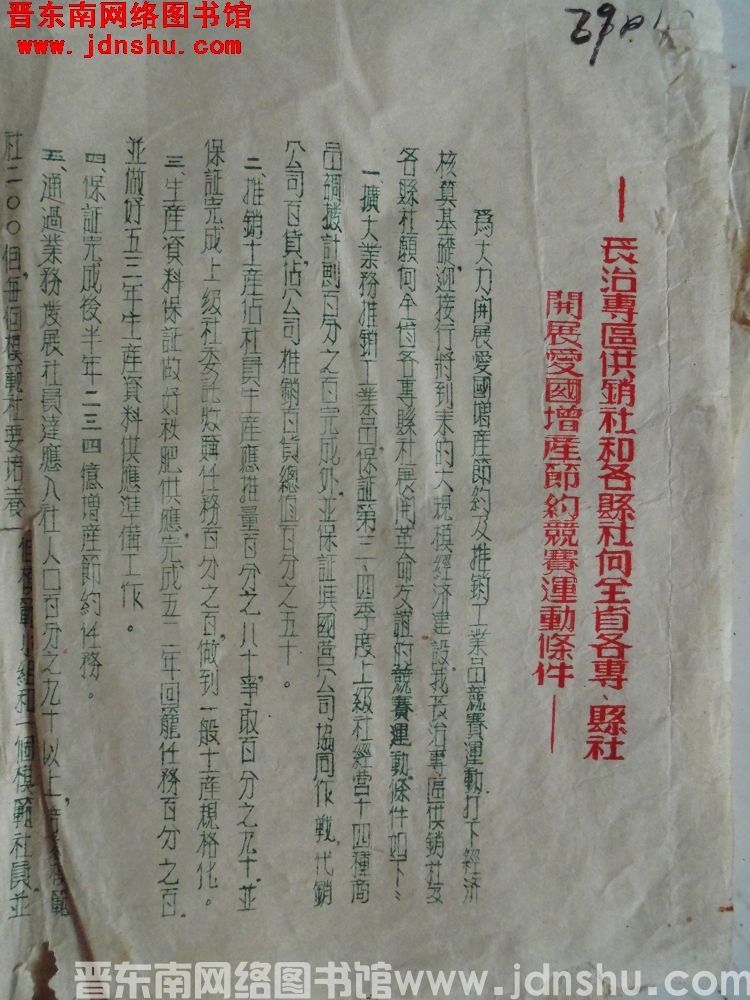 晋东南网络图书馆
www.jdnshu.com
—長治專區供銷社和各縣社向全省各專、縣社
開展愛國增産節約競賽運動條件—
爲大力開展愛國增產節約及推銷工業品競賽運動,打下經济
核算基礎,迎接行將到來的大規模經济建設,我長治專區供銷社及
各縣社願向全省各專縣社展開革命友誼的競賽運動,條件如下:
一、擴大業務推銷工業品,保証第三、四季度上級社經营十四種商
品調撥計劃百分之百完成外,並保証與國营公司協同作戰,代銷
公司百貨佔公司推銷百貨總值百分之五十。
二、推銷土産佔社員生産應推量百分之八十,爭取百分之九十,並
保証完成上級社委託收購任務百分之百,做到一般土産規格化。
三、生産資料保証做好秋肥供應,完成五二年回籠任務百分之百,
並做好五三年生産資料供應準備工作。
四、保証完成後半年二三四億增産節約任務。
五、通過業務發展社員達應入社人口百分之九十以上,範
社二〇〇個,每個模範社要培養一個模範小組和一個模範社員,並
晋东南网络图书馆www.jdnshu.com